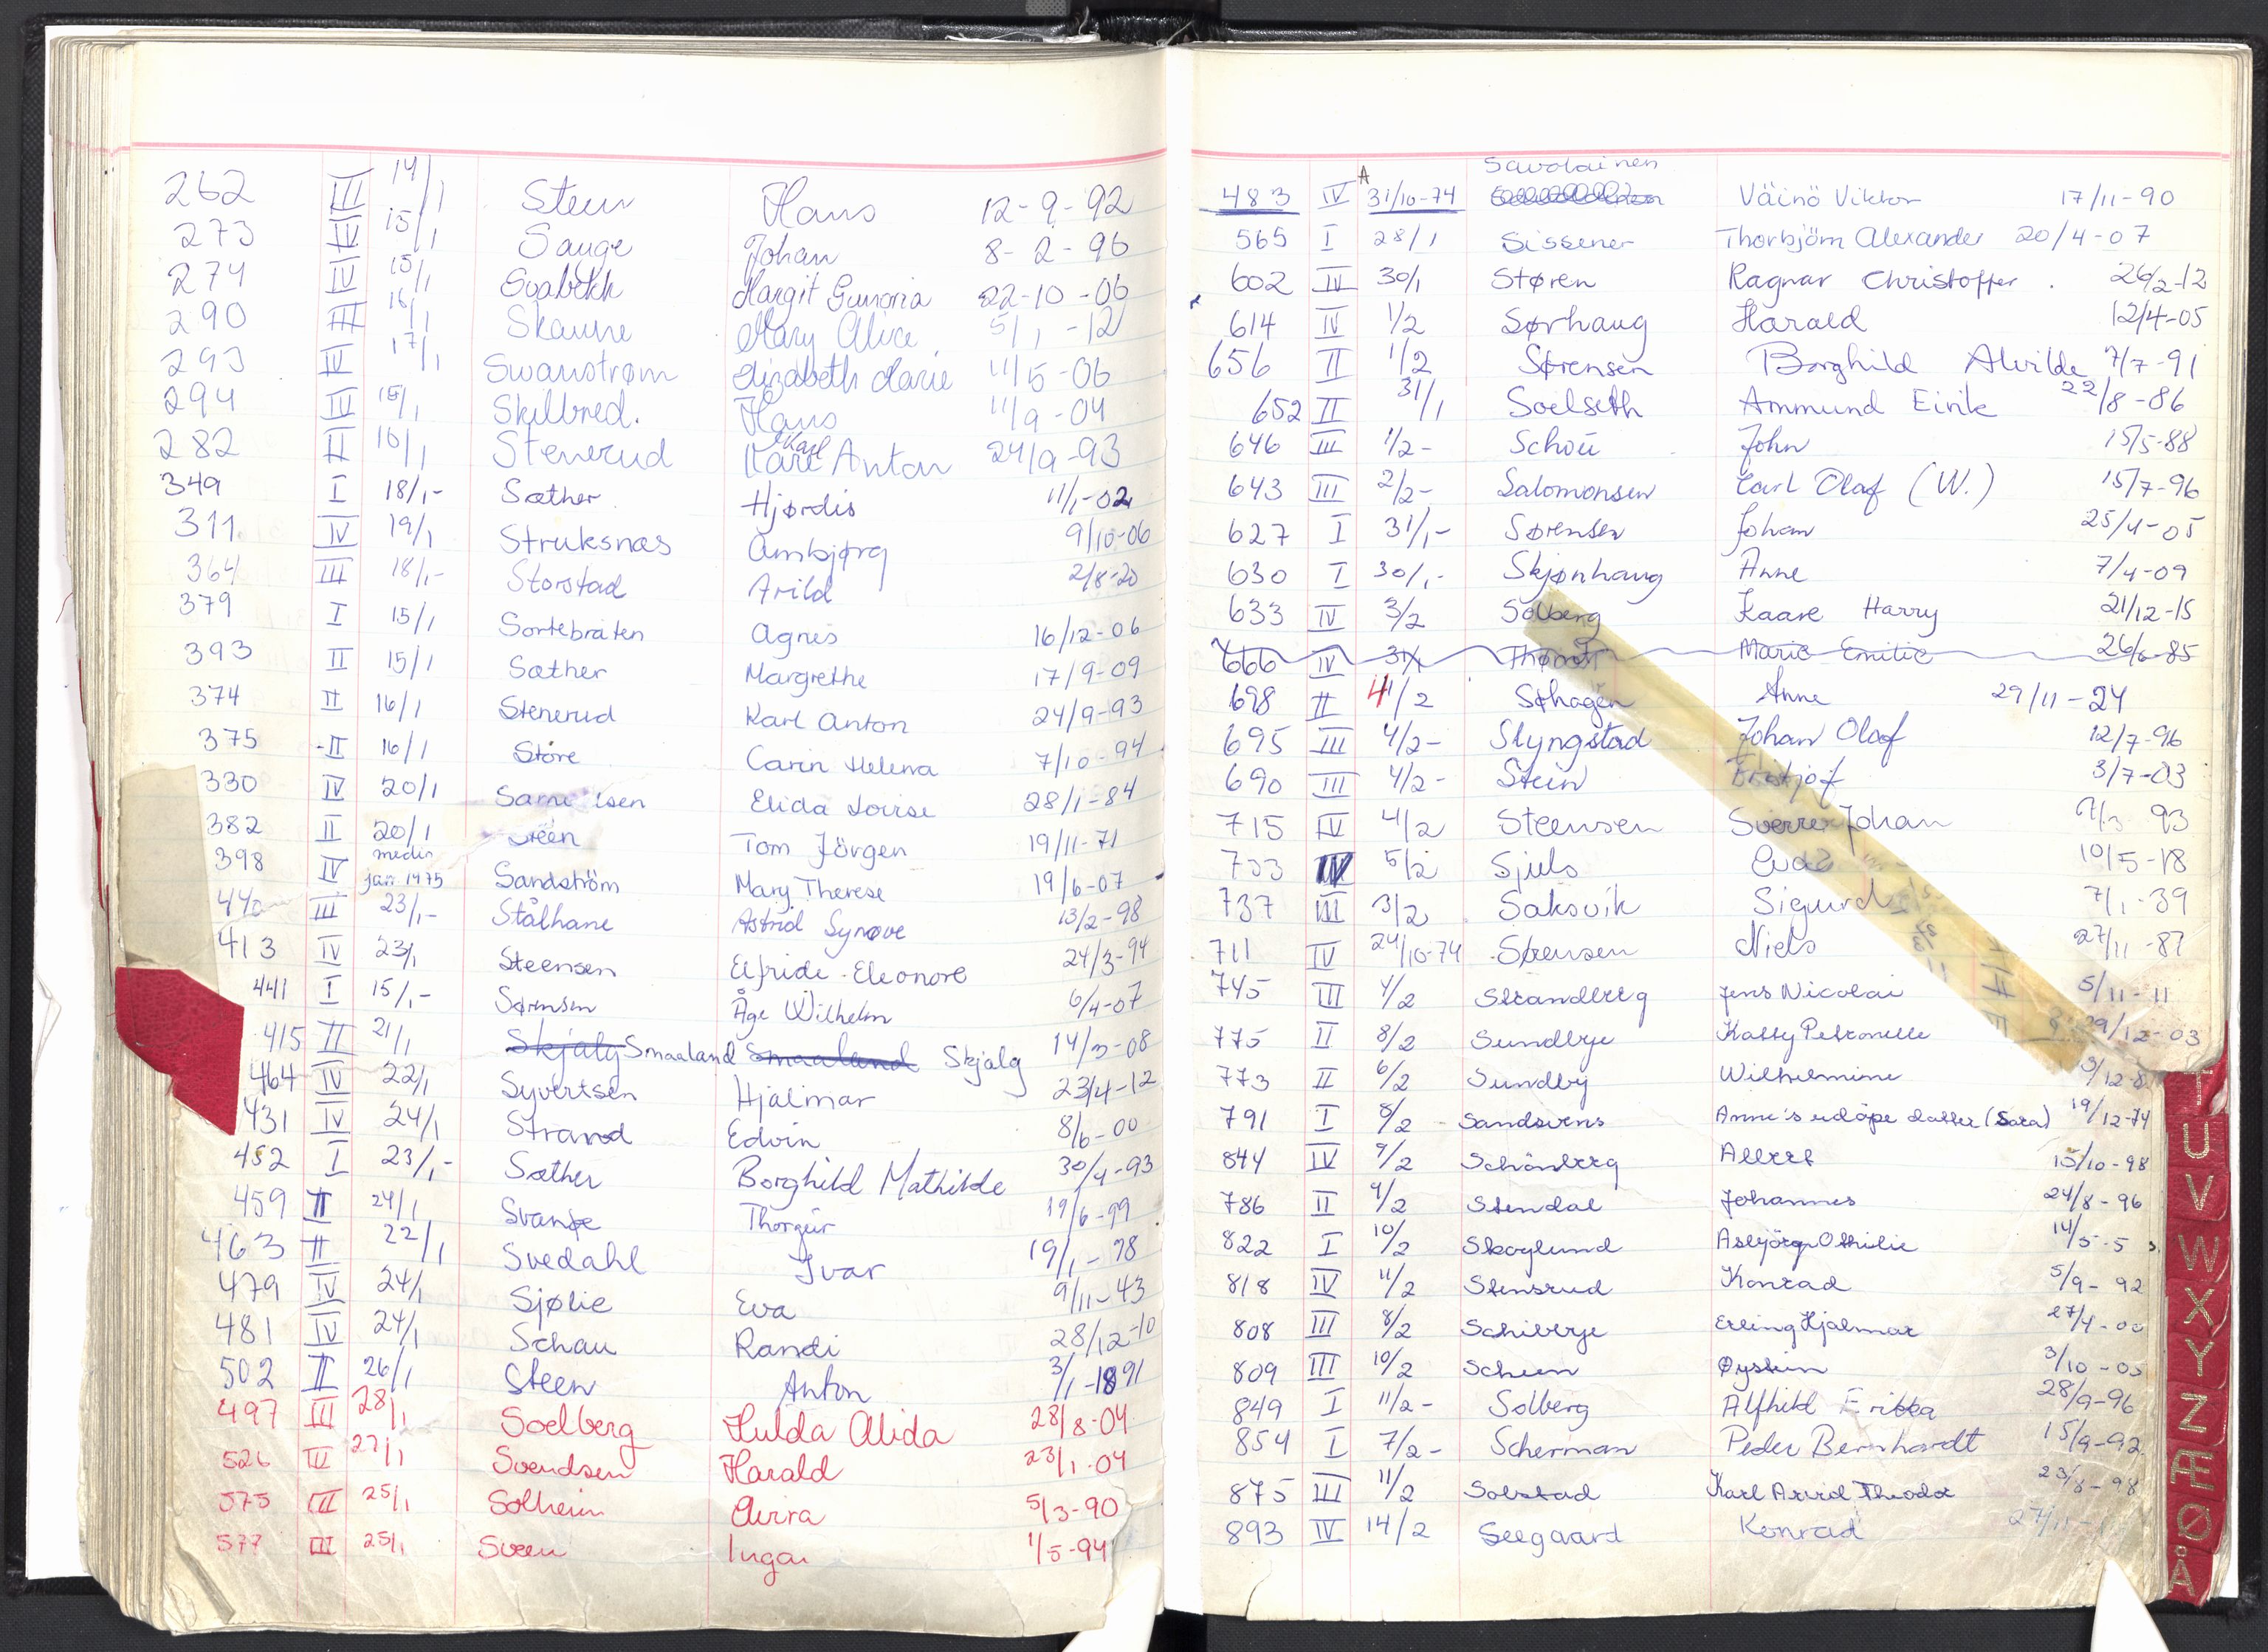 262 III 14/1 Steen Hans 12-9-92
273 III 15/1 Sauge Johan 8-2-96
274 IV 15/1 Svabekk Margit Gunoria 22-10-06
290 III 16/1 Skaune Mary Alice 5/1-12
293 IV 17/1 Swanstrøm Elizabeth Marie 11/5-06
294 III 15/1 Skilbred. Hans 11/9-04
282 II 16/1 Stenerud Karl Anton 24/9-93
349 I 18/1- Sæther Hjørdis 11/1-02
311. IV 19/1 Struksnæs Ambjørg 9/10-06
364 III 18/1- Storstad Arild 2/8-20
379 I 15/1 Sortebråten Agnes 16/12-06
393 II 15/1 Sæther Margrethe 17/9-09
374 II 16/1 Stenerud Karl Anton 24/9-93
375 -II 16/1 Støre Carin Helena 7/10-94
330 IV 20/1 Elida Lovise 28/1-84
382 II 20/1 Steen Tom Jörgen 19/11-71
398 IV medio jan 1975 Sandström Mary Therese 19/6-07
440 III 23/1- Stålhane Astrid Synøve 13/2-98
413 IV 23/1 Steensen Elfride-Eleonore 24/3-94
441 I 15/1- Sørensen Åge Wilhelm 6/4-07
415 II 21/1 Skjalg Smaaland Smaaland Skjalg 14/3-08
464 IV 22/1 Syvertsen Hjalmar 23/4-12
431 IV 24/1 Strand Edvin 8/6-00
452 I 23/1- Sæther Borghild Mathilde 30/4-93
459 II 24/1 Svange Thorgeir 19/6-99
463 II 22/1 Svedahl Ivar 19/1-78
479 IV 24/1 Sjølie Eva 9/11-43
481 IV 24/1 Schau Randi 28/12-10
502 II 26/1 Steen Anton 3/1-1891
497 III 28/1 Soelberg Hulda Alida 28/8-04
526 IV 27/1 Svendsen Harald 23/1-04
575 III 25/1 Solheim 5/3-90
577 III 25/1 Sveen Inga 1/5-94
Savolainen
483 IV A 31/10-74 Väinö Viktor 17/11-90
565 I 28/1 Sissener Thorbjörn Alexander 20/4-07
602 IV 30/1 Støren Ragnar Christoffer. 26/2-12
614 IV 1/2 Sørhaug Harald 12/4-05
656 II 1/2 Sørensen Borghild Alvilde 7/7-91
652 II 31/1 Soelseth Ammund Eirik 22/8-86
646 III 1/2- Schou John 15/5-88
643 III 2/2- Salomonsen Carl Olaf (W.) 15/7-96
627 I 31/1- Sørensen Johan 25/4-05
630 I 30/1- Skjønhaug Anne 7/4-09
633 IV 3/2 Solberg Kaare Harry 21/12-15
666 IV 31/1 Marie Emilie 26/6-85
698 II 4/2 Søhagen Anne 29/11-24
695 III 4/2- Slyngstad Johan Olaf 12/7-96
690 III 4/2- Stein Fridtjof 3/7-03
715 IV 4/2 Steensen Sverre Johan 7/3-93
733 IV 5/2 Sjuls 10/5-18
737 III 3/2 Saksvik Sigurd 7/1-39
711 IV 24/10-74 Sørensen Niels 27/11-87
745 III 4/2 Strandberg Jens Nicolai 5/11-11
775 II 8/2 Sundbye Katty Petronelle 29/12-03
773 II 6/2 Sundby Wilhelmine 3/12-8
791 I 8/2 Sandsvens Anne's udöpe datter (Sara) 19/12-74
844 IV 9/2 Schönberg Albert 15/10-98
786 II 9/2 Stendal Johannes 24/8-96
822 I 10/2 Skoglund Asbjörg Othilie 14/5-5
818 IV 11/2 Stensrud Konrad 5/9-92
808 III 8/2 Schibbye Erling Hjalmar 27/4-00
809 III 10/2 Scheen Øystein 3/10-05
849 I 11/2- Solberg Alfhild Erikka 28/9-96
854 I 7/2- Scherman Peder Bernhardt 15/9-92
875 III 11/2 Solstad Karl Arvid Theodor 23/8-98
893 IV 14/2 Seegaard Konrad 27/11-
T
U
V
W
X
Y
Z
Æ
Ø
Å